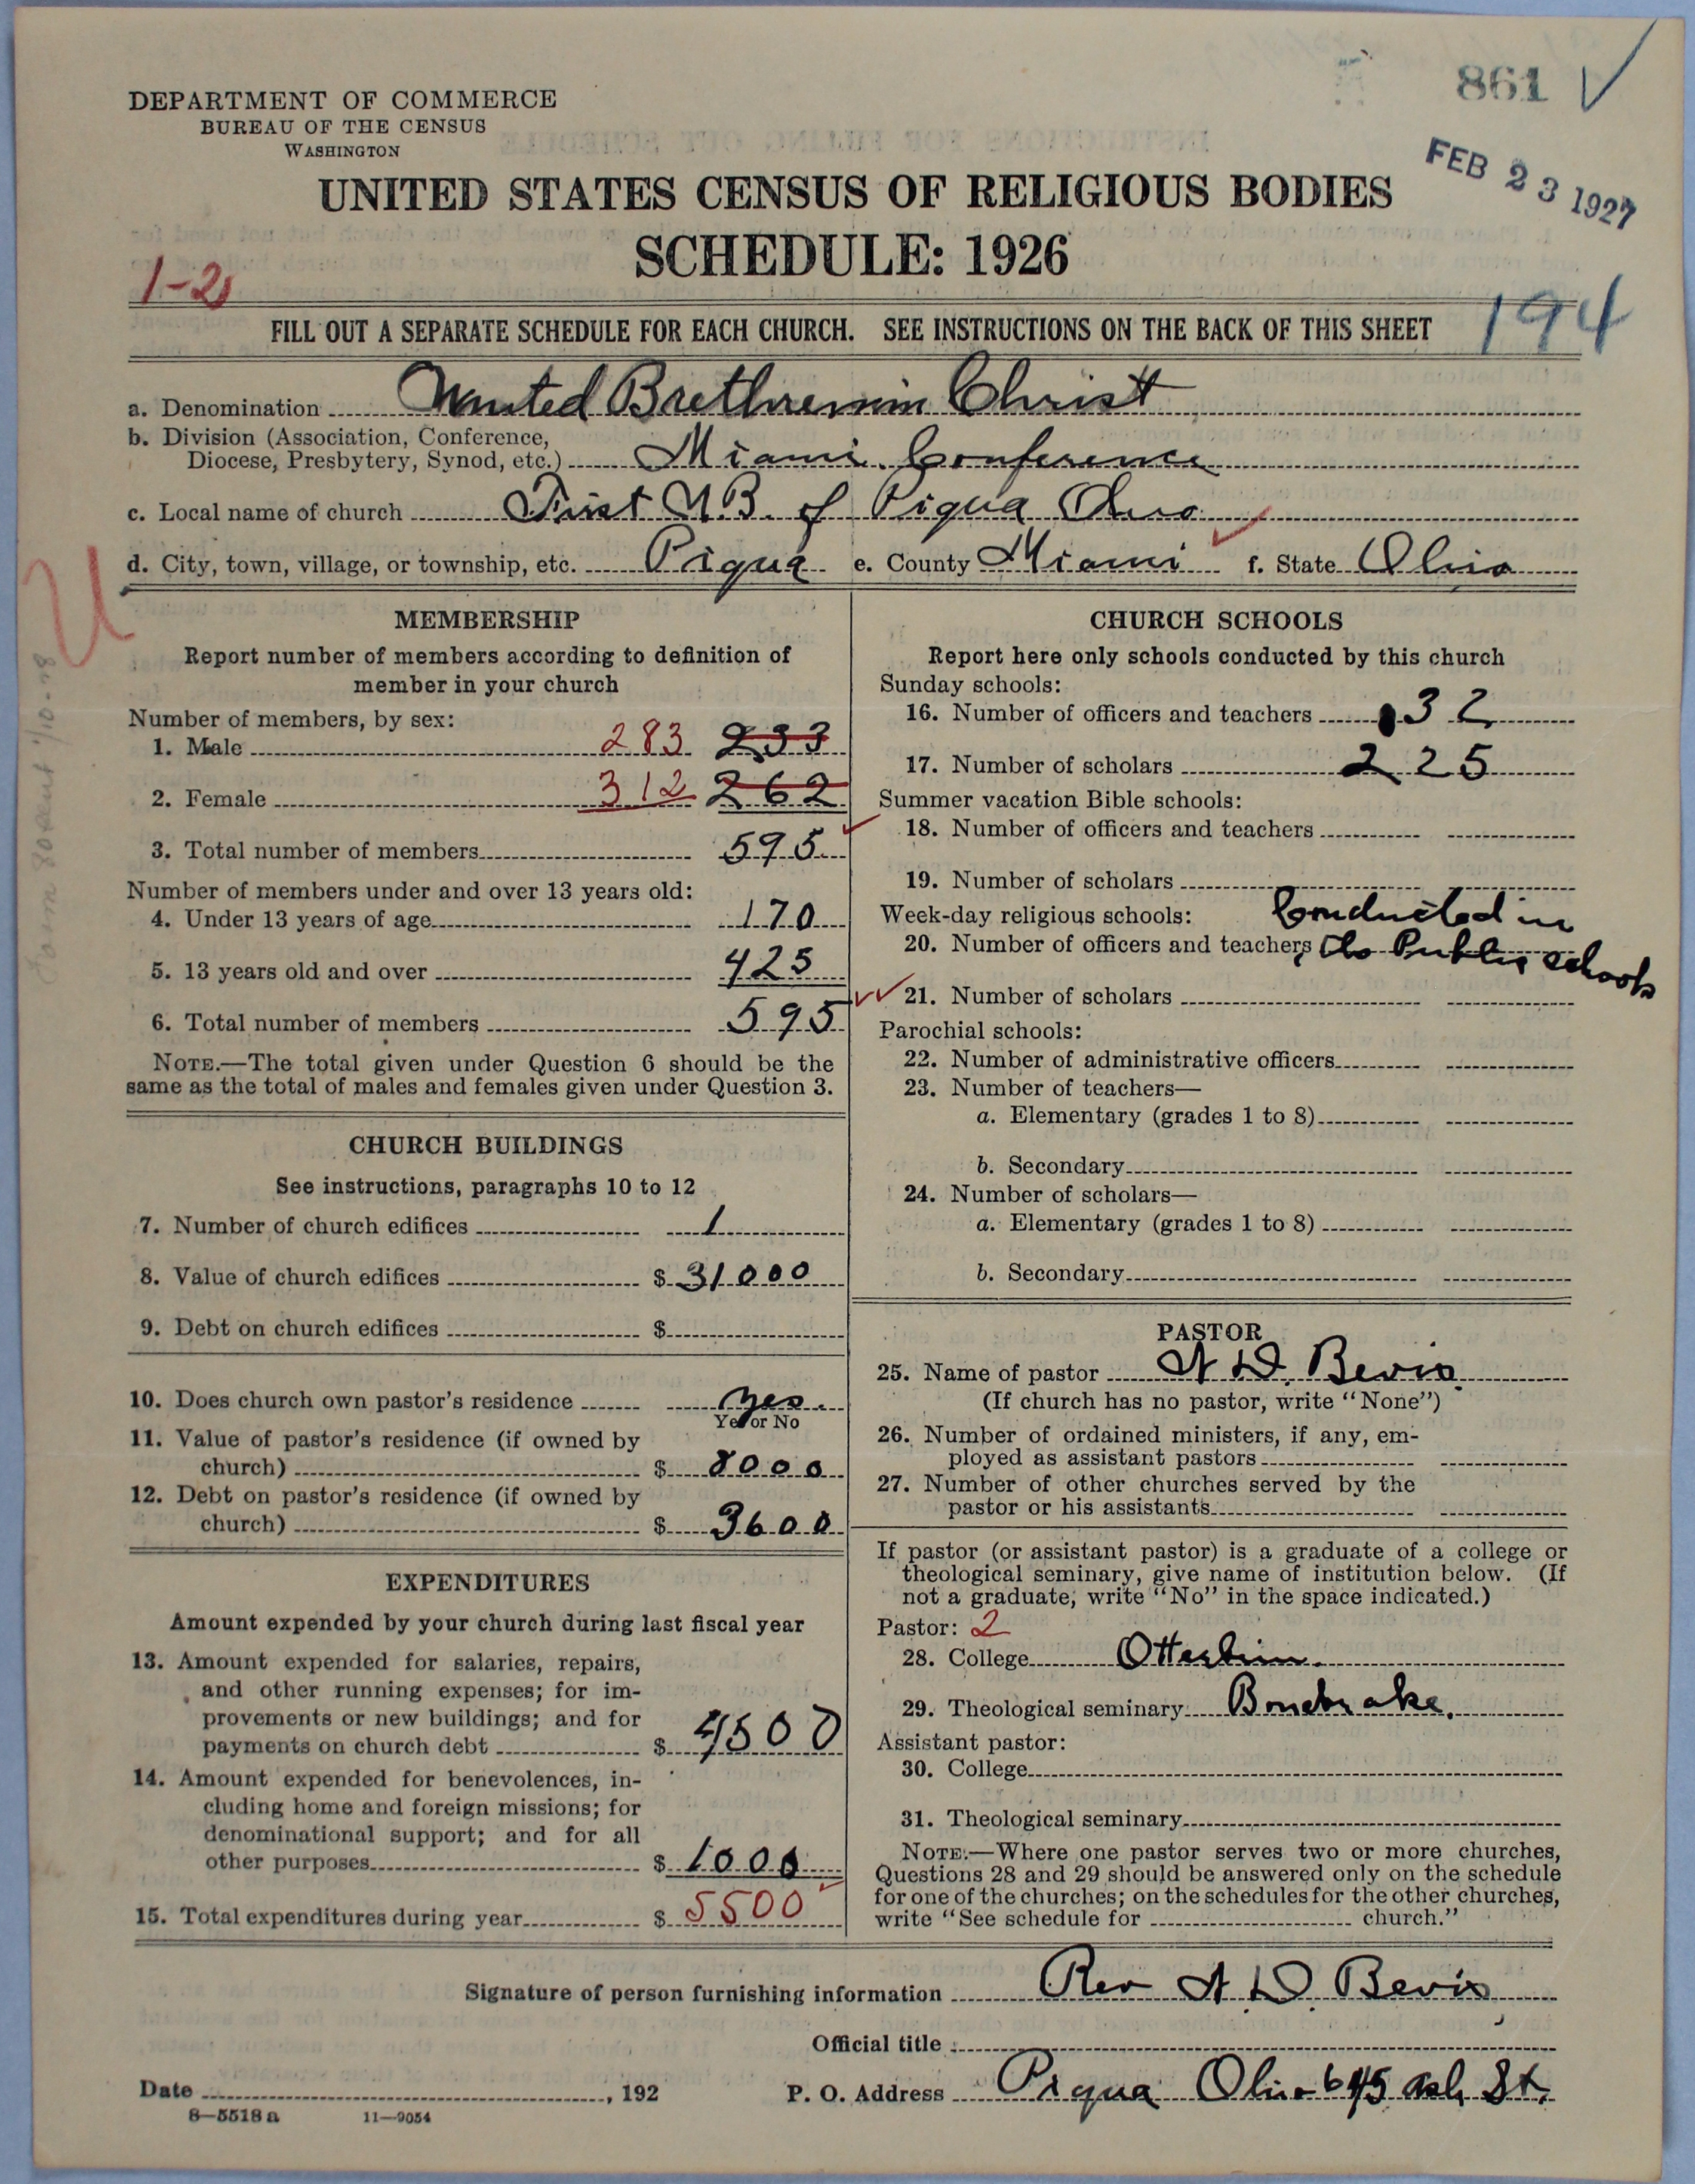 861 ✓
DEPARTMENT OF COMMERCE
BUREAU OF THE CENSUS
WASHINGTON
FEB 23 1927
UNITED STATES CENSUS OF RELIGIOUS BODIES
SCHEDULE: 1926
1-2
194
FILL OUT A SEPARATE SCHEDULE FOR EACH CHURCH. SEE INSTRUCTIONS ON THE BACK OF THIS SHEET
a. Denomination United Brethren in Christ
b. Division (Association, Conference,
Diocese, Presbytery, Synod, etc.) Miami Conference
c. Local name of church First U.B. of Piqua Ohio
d. City, town, village, or township, etc. Piqua e. County Miami f. State Ohio
U
MEMBERSHIP
Report number of members according to definition of
member in your church
Number of members, by sex:
1. Male 283 233
2. Female 312 262
3. Total number of members 595
Number of members under and over 13 years old:
4. Under 13 years of age 170
5. 13 years old and over 425
6. Total number of members 595
NOTE.—The total given under Question 6 should be the
same as the total of males and females given under Question 3.
CHURCH BUILDINGS
See instructions, paragraphs 10 to 12
7. Number of church edifices 1
8. Value of church edifices $ 31000
9. Debt on church edifices $
10. Does church own pastor's residence yes.
Yes or No
11. Value of pastor's residence (if owned by
church) $ 8000
12. Debt on pastor's residence (if owned by
church) $ 3600
EXPENDITURES
Amount expended by your church during last fiscal year
13. Amount expended for salaries, repairs,
and other running expenses; for im-
provements or new buildings; and for
payments on church debt $ 4500
14. Amount expended for benevolences, in-
cluding home and foreign missions; for
denominational support; and for all
other purposes $ 1000
15. Total expenditures during year $ 5500
CHURCH SCHOOLS
Report here only schools conducted by this church
Sunday schools:
16. Number of officers and teachers 32
17. Number of scholars 225
Summer vacation Bible schools:
18. Number of officers and teachers
19. Number of scholars
Week-day religious schools: Conducted in
20. Number of officers and teachers the Public schools
21. Number of scholars
Parochial schools:
22. Number of administrative officers
23. Number of teachers—
a. Elementary (grades 1 to 8)
b. Secondary
24. Number of scholars—
a. Elementary (grades 1 to 8)
b. Secondary
PASTOR
25. Name of pastor D. Bevis
(If church has no pastor, write "None")
26. Number of ordained ministers, if any, em-
ployed as assistant pastors
27. Number of other churches served by the
pastor or his assistants
If pastor (or assistant pastor) is a graduate of a college or
theological seminary, give name of institution below. (If
not a graduate, write "No" in the space indicated.)
Pastor: 2
28. College Otterbein.
29. Theological seminary Bonebrake.
Assistant pastor:
30. College
31. Theological seminary
NOTE.—Where one pastor serves two or more churches,
Questions 28 and 29 should be answered only on the schedule
for one of the churches; on the schedules for the other churches,
write "See schedule for church."
Signature of person furnishing information Rev D. Bevis
Official title
Date , 192 P. O. Address Piqua Ohio 645 Ash St.
8—5518 a 11—9054